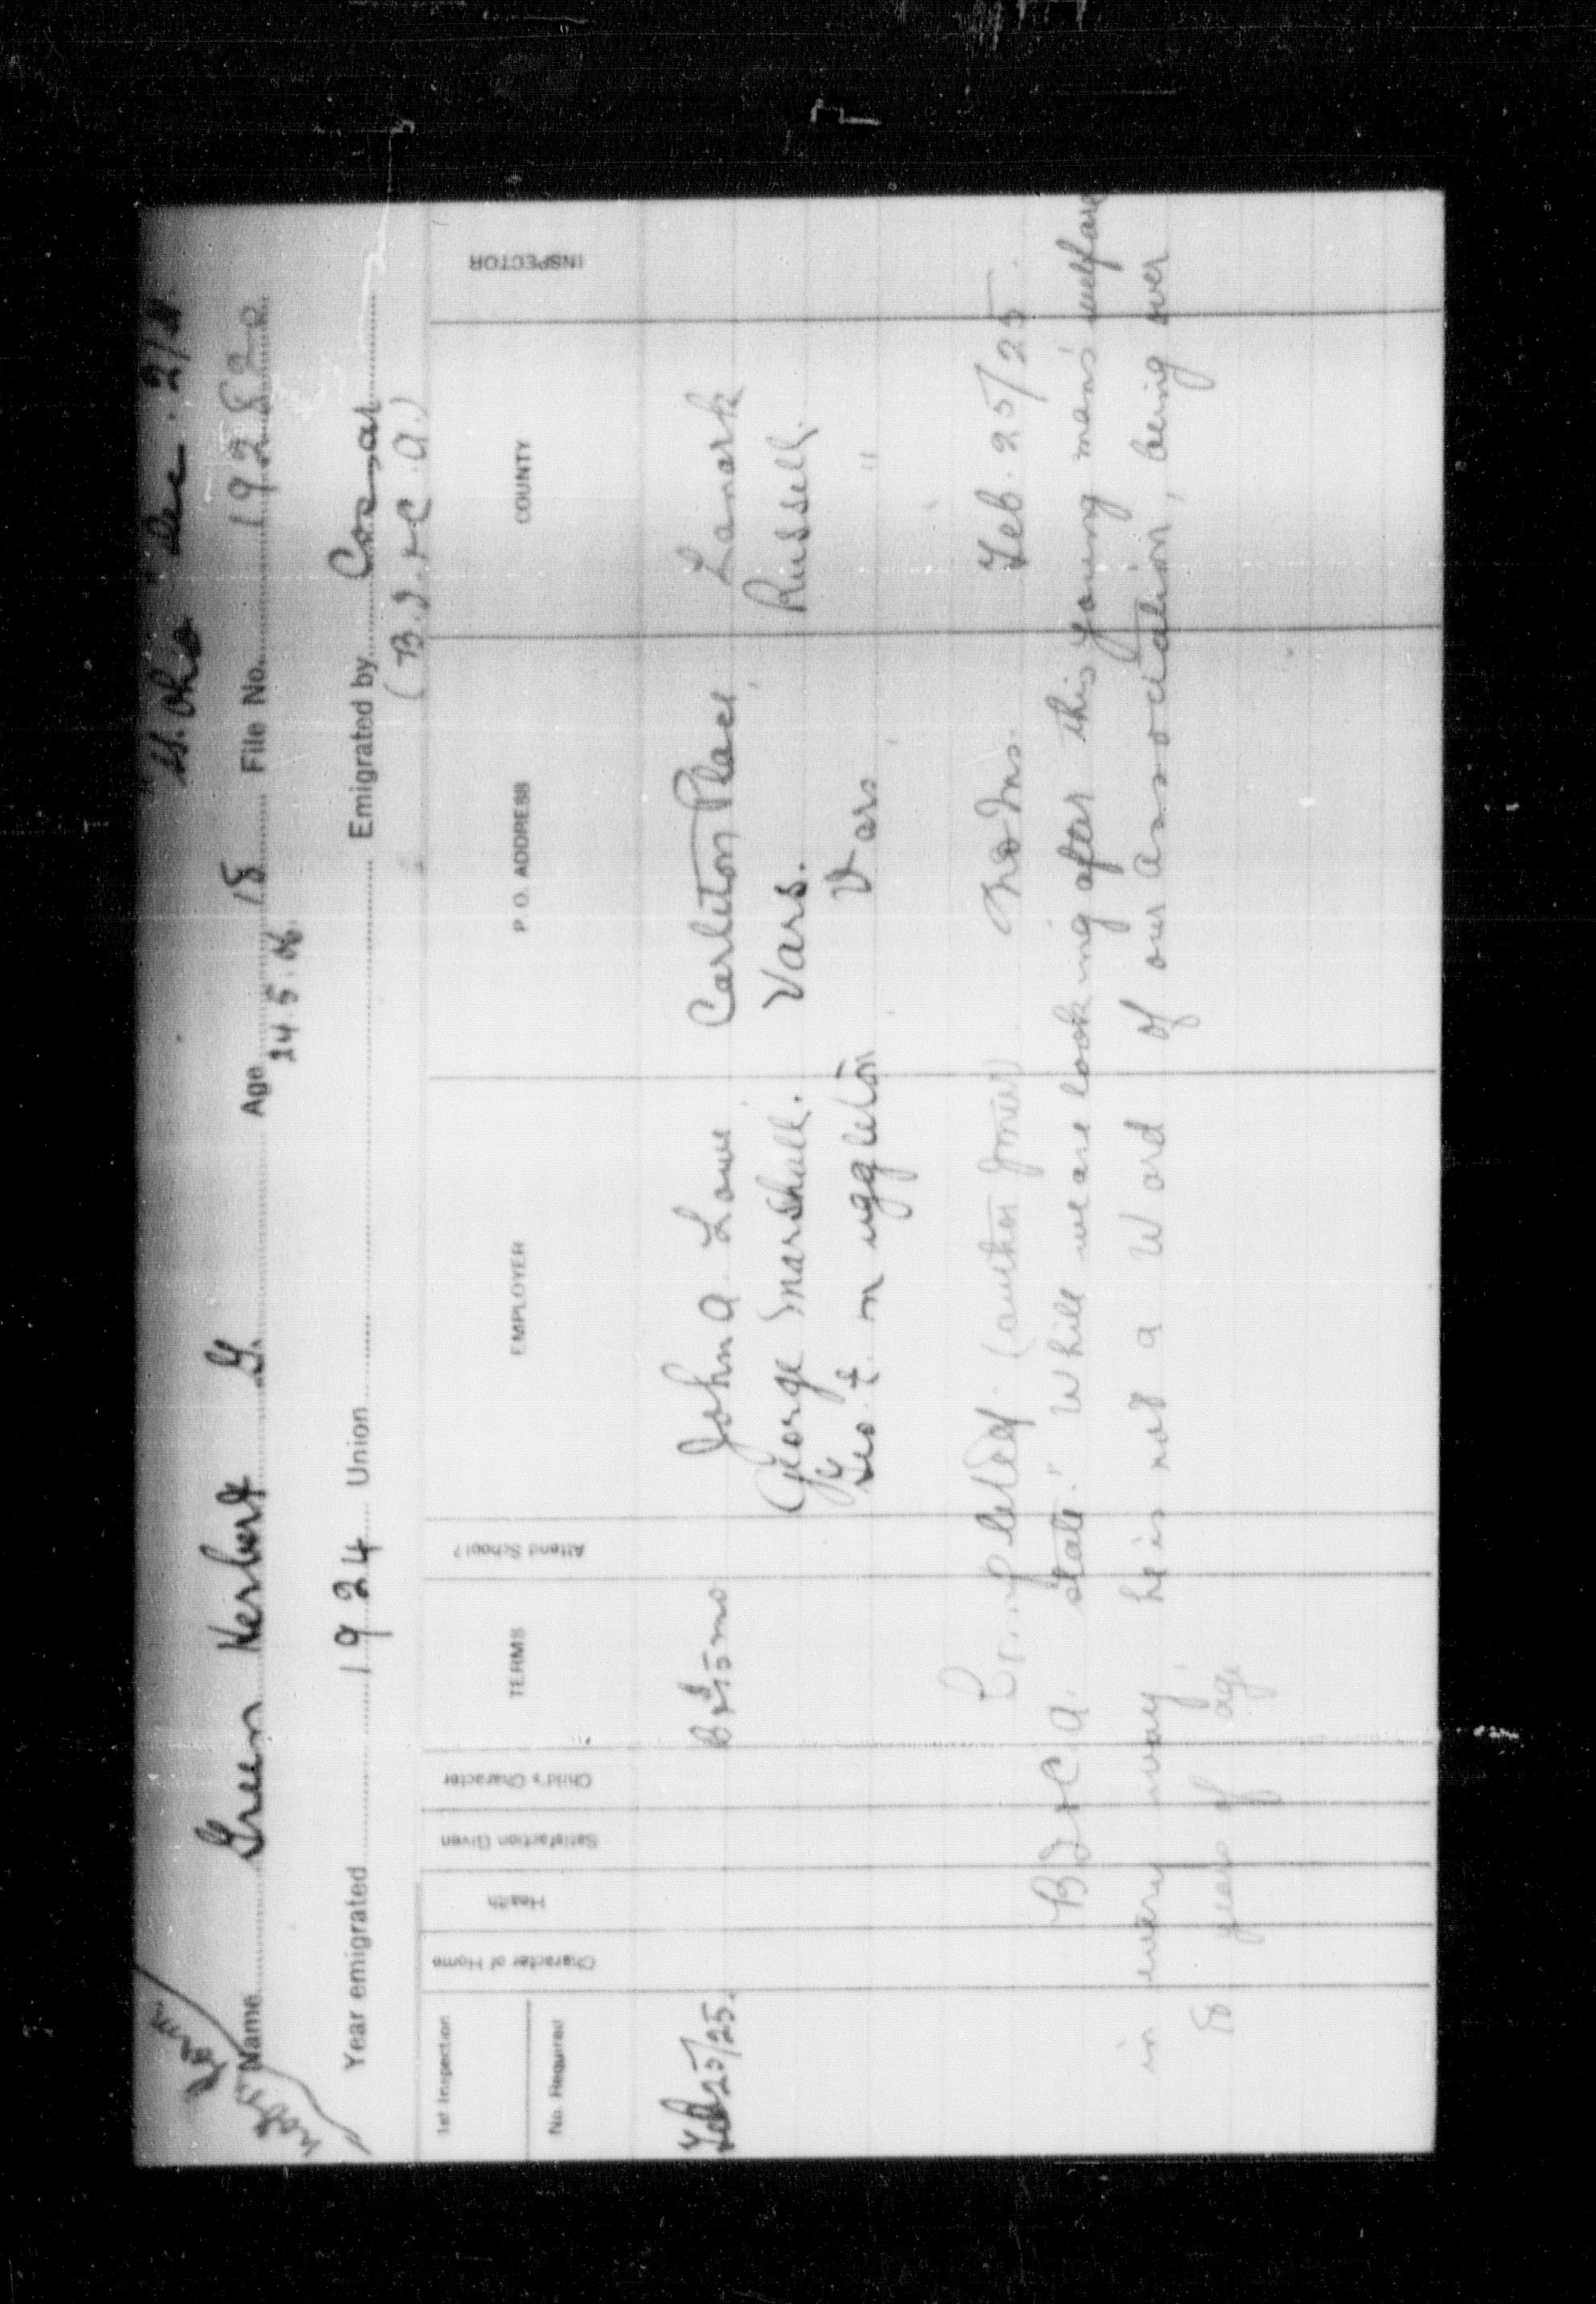 Dec. 2/24
Name Green Herbert G. Age 18 File No. 192820
24.5.06
Year emigrated 1924 Union Emigrated by Cossar
(B.I.+C.A.)
1st Inspection
No. Required
Character of Home
Health
Satisfaction Given
Child's Character
TERMS
Attend School?
EMPLOYER
P. O. ADDRESS
COUNTY
INSPECTOR
Feb 25/25. $15 mo John A. Lowe Carleton Place Lanark
George Marshall. Vars. Russell.
Geo. t. Muggleton Vars "
Feb. 25/25.
B I + C A. state "While we are looking after this young man's welfare
in every way, he is not a Ward of our Association, being over
18 years of age